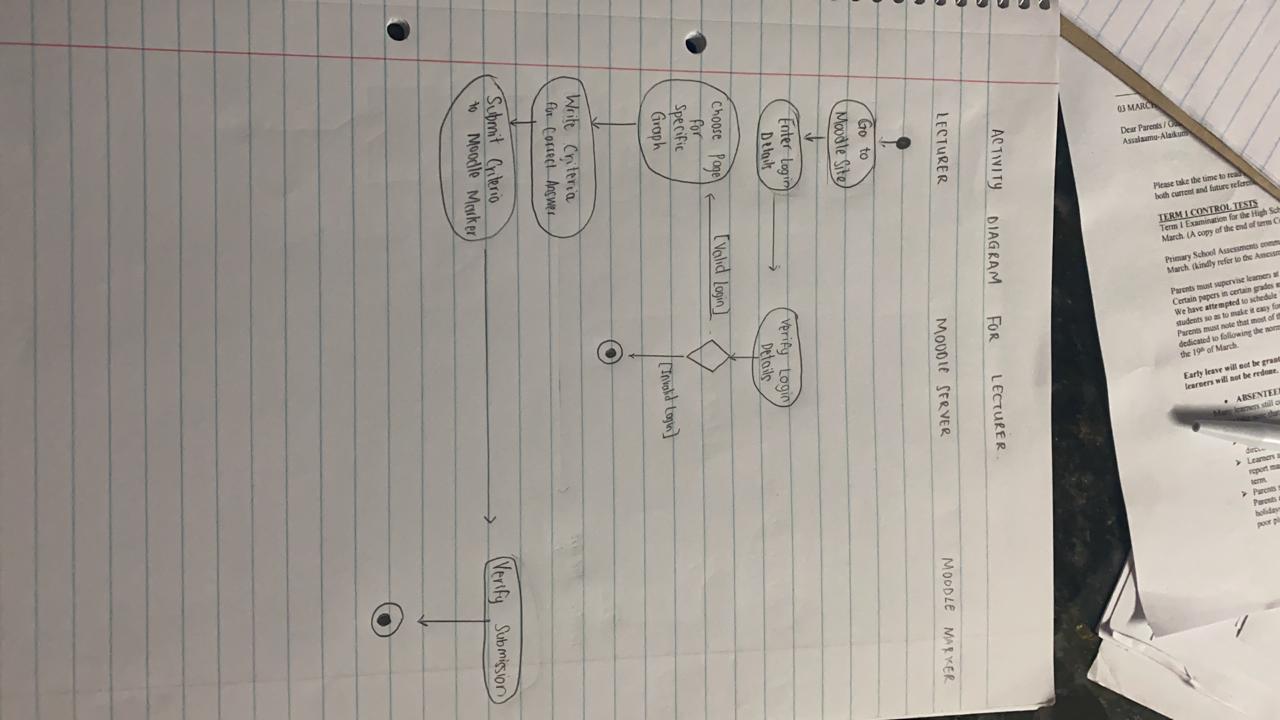 ACTIVITY DIAGRAM FOR LECTURER.
LECTURER MOODLE SERVER MOODLE MARKER
Go to
Moodle Site
Enter Login
Details
Verify Login
Details
Choose Page
For
Specific
Graph
[Valid Login]
[Invalid Login]
Write Criteria
for Correct Answer
Submit Criteria
to Moodle Marker
Verify Submission
03 MARCH
Dear Parents /
Assalaamu-Alaikum
Please take the time to read
both current and future
TERM 1 CONTROL TESTS
Term 1 Examination for the High
March. (A copy of the end of term
Primary School Assessments
March. (kindly refer to the
Parents must supervise learners at
Certain papers in certain grades
We have attempted to schedule
students so as to make it easy for
Parents must note that most of
dedicated to following the
the 19th of March.
Early leave will not be
learners will not be redone.
learners still
Learners
report
term.
Parents
Parents
poor